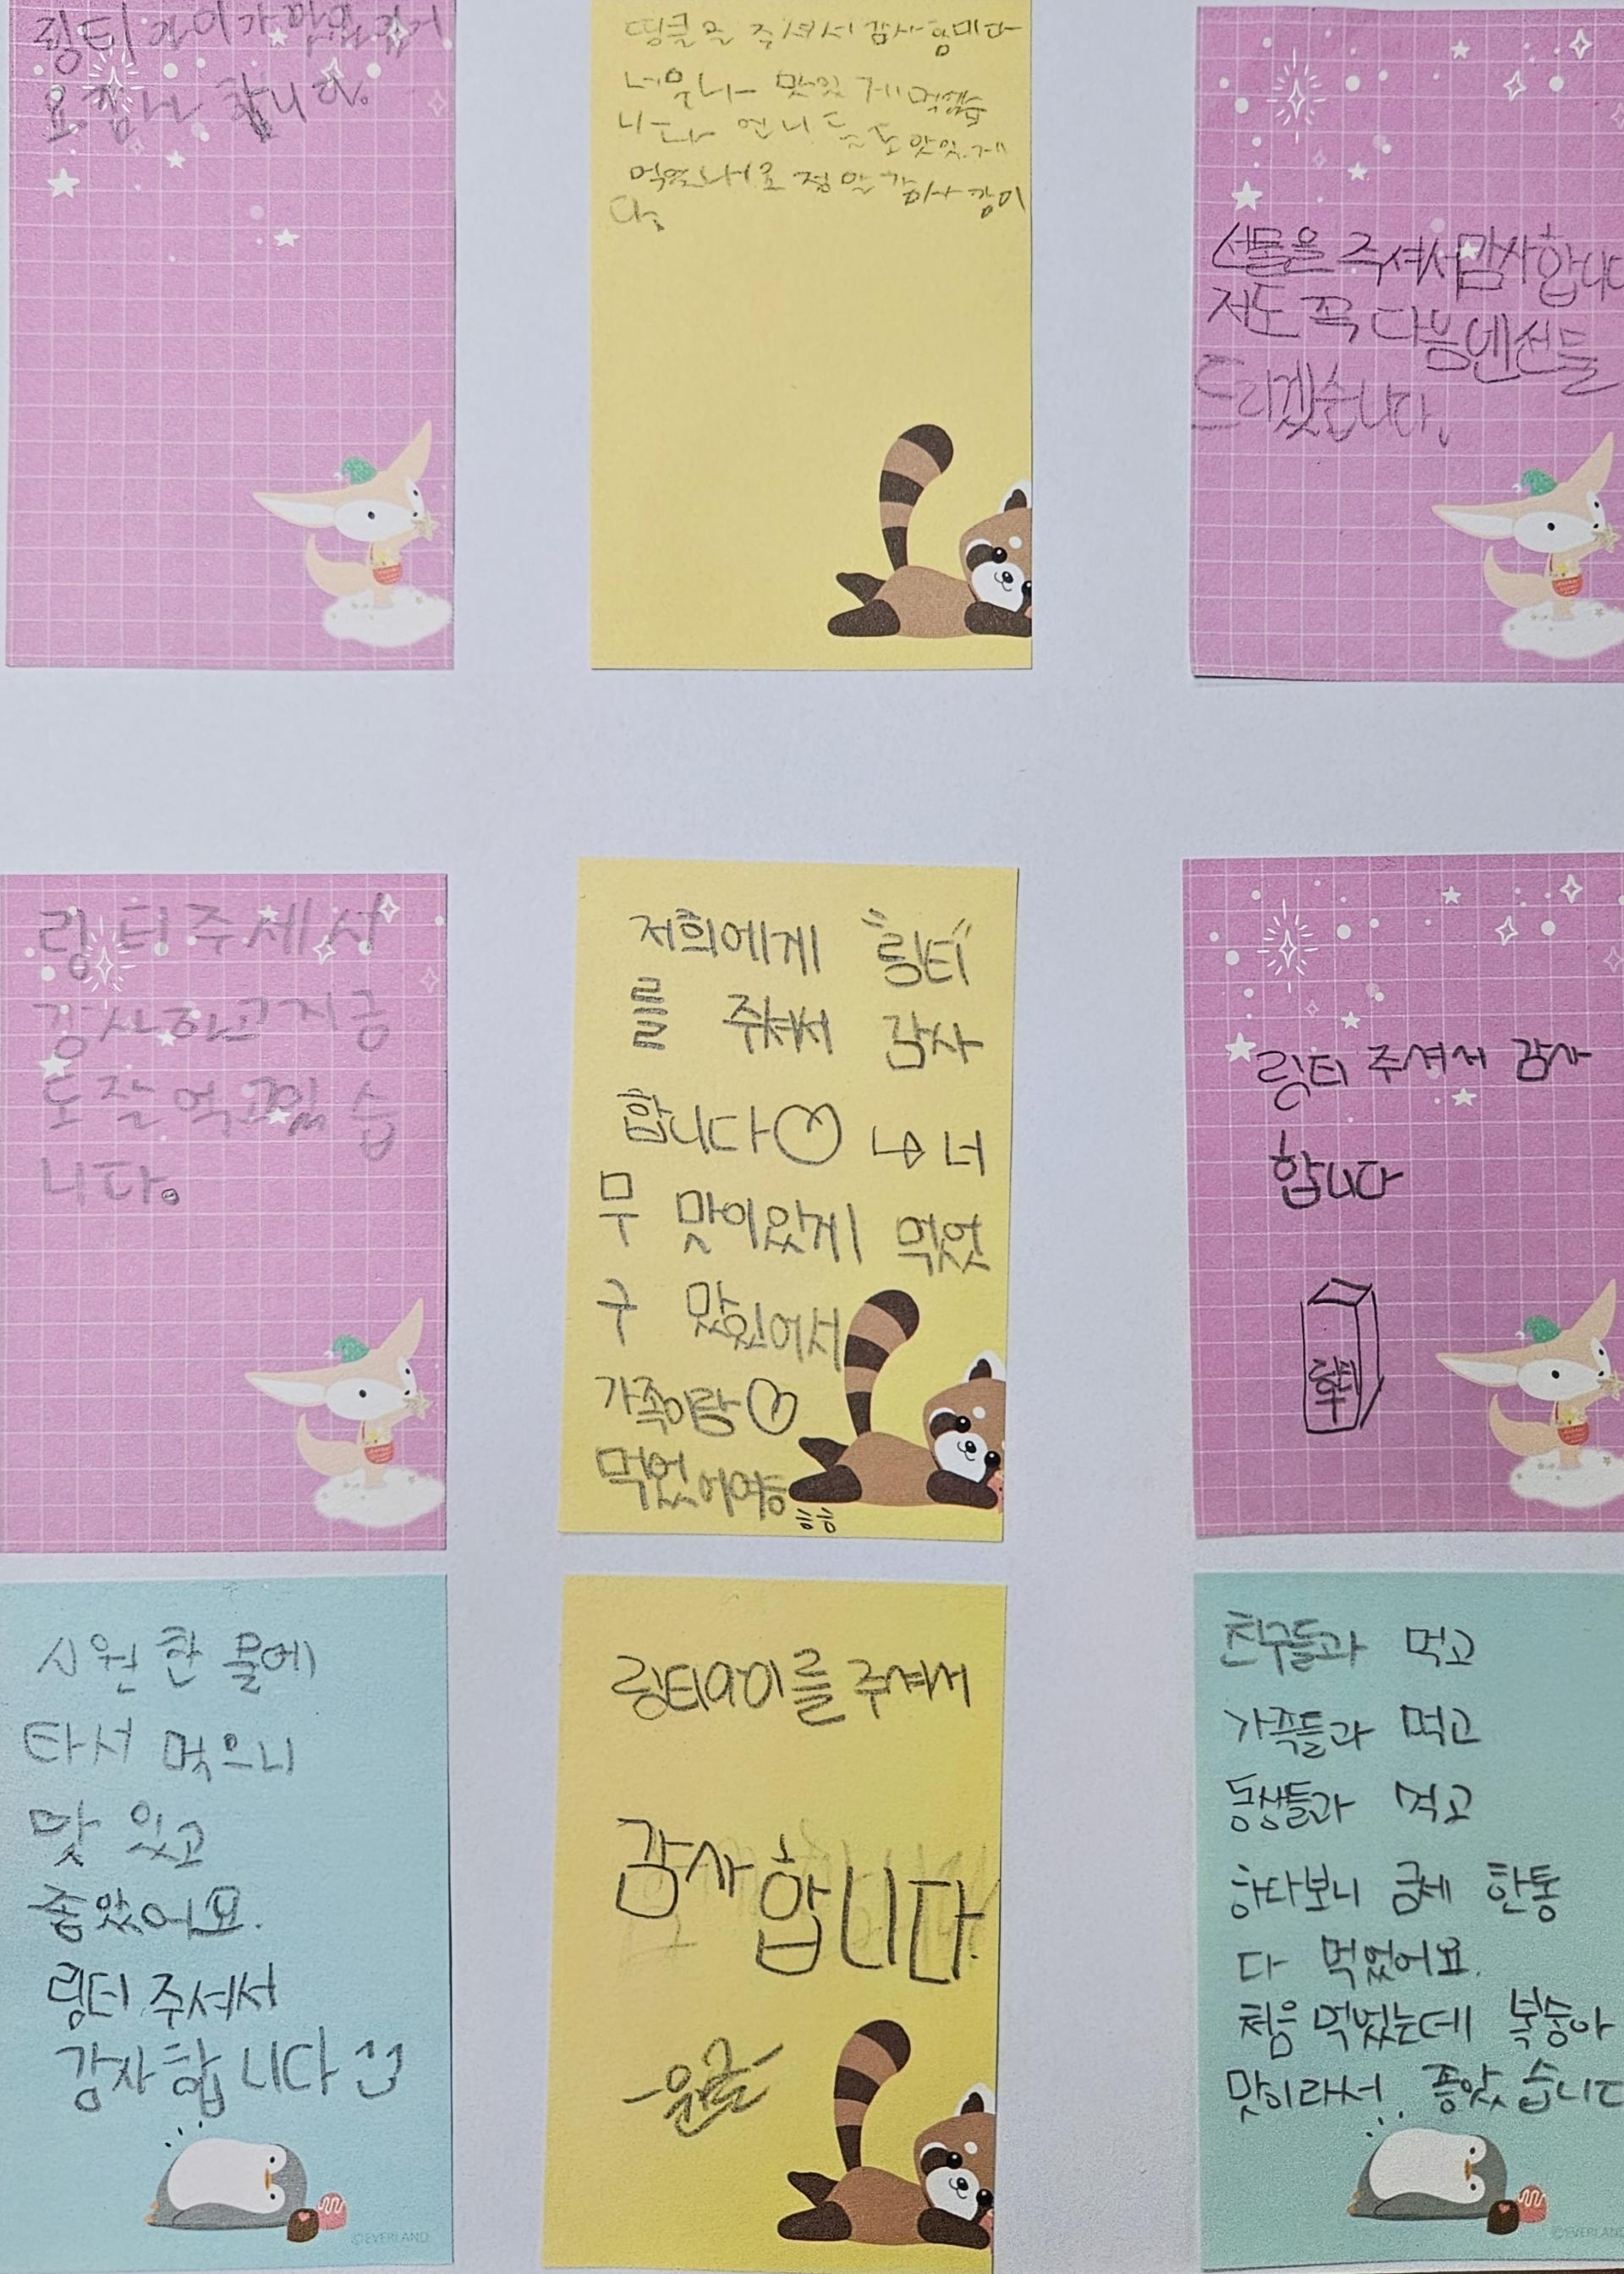 링티
요. 감사 합니다.
주셔서 감사합미다
너무나 맛있게 먹
니다 언니들도 맛있게
정말 감사함미
다.
선물을 주셔서 감사합니다
저도 꼭 다음엔 선물
드리겠습니다.
링티주세서
감사하고지금
도 잘 먹고있습
니다.
저희에게 "링티"
를 주셔서 감사
합니다♡ ↳ 너
무 맛이있게 먹었
구 맛있어서
가족이랑♡
먹었어여용
링티 주셔서 감사
합니다
링티
시원한 물에
타서 먹으니
맛 있고
좋았어요.
링티 주셔서
감사합니다
©EVERLAND
링티아이를 주셔서
감사합니다.
친구들과 먹고
가족들과 먹고
동생들과 먹고
하다보니 금세 한통
다 먹었어요.
처음 먹었는데 복숭아
맛이라서 좋았습니다
©EVERLAND